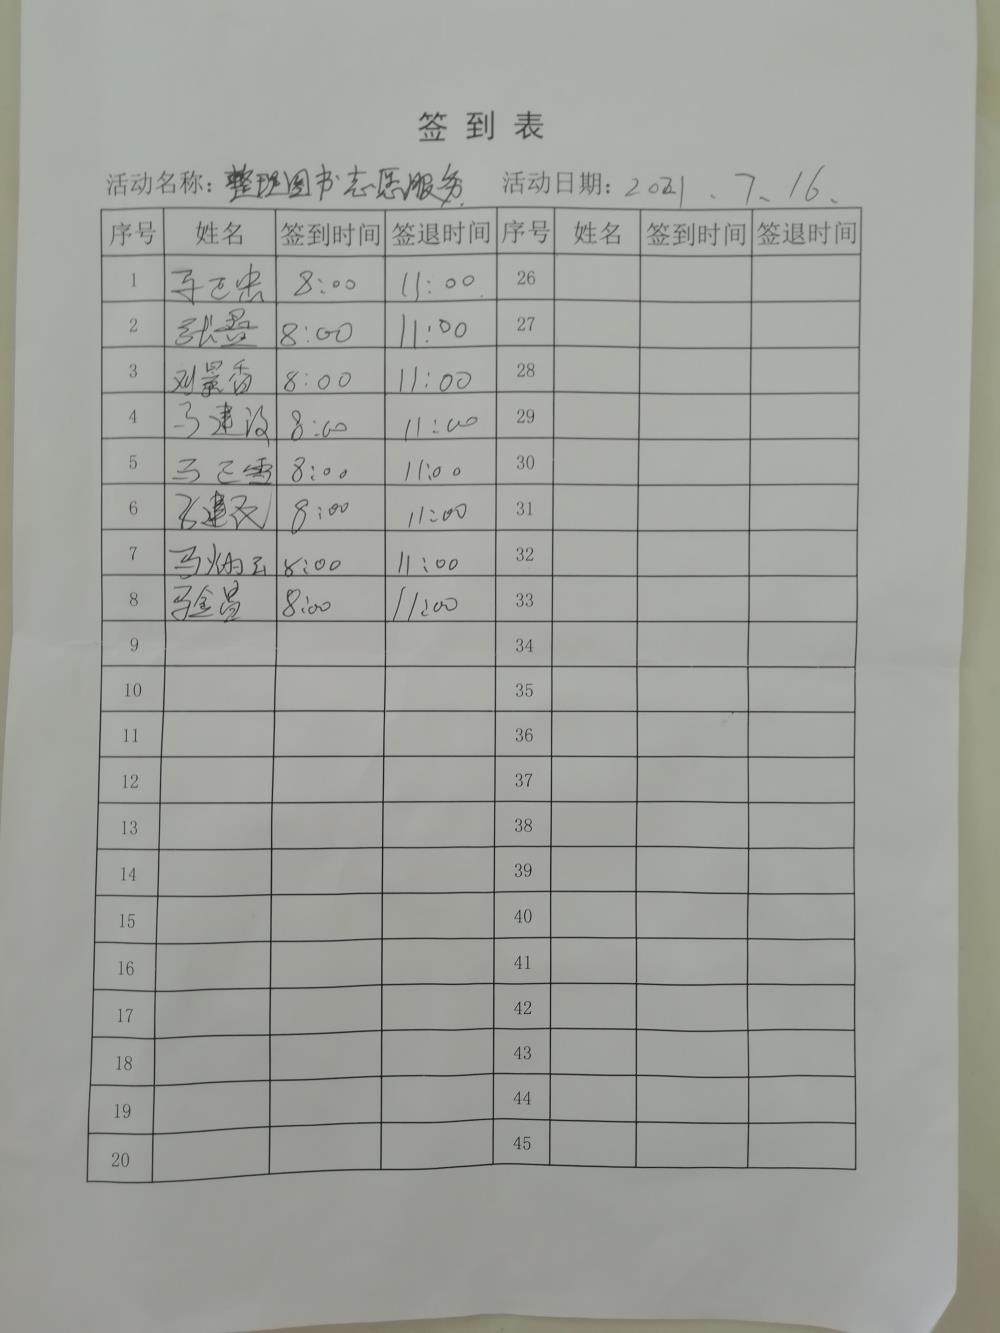 签到表
活动名称：整理图书志愿服务 活动日期：2021.7.16.
序号 姓名 签到时间 签退时间 序号 姓名 签到时间 签退时间
1 8:00 11:00 26
2 8:00 11:00 27
3 刘景香 8:00 11:00 28
4 马建设 8:00 11:00 29
5 马正雪 8:00 11:00 30
6 8:00 11:00 31
7 马炳云 8:00 11:00 32
8 马金昌 8:00 11:00 33
9 34
10 35
11 36
12 37
13 38
14 39
15 40
16 41
17 42
18 43
19 44
20 45